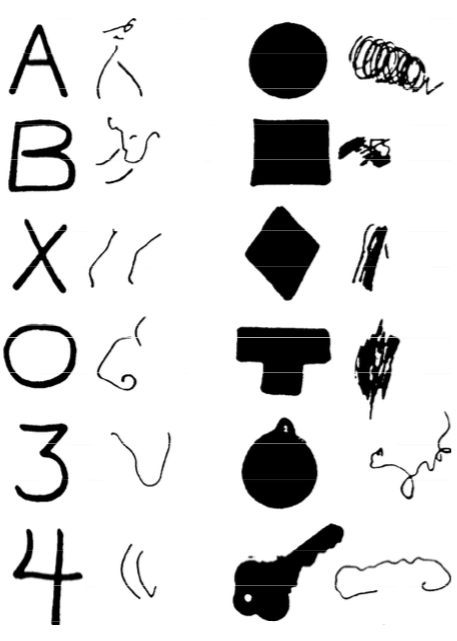 A
B
X
O
3
4